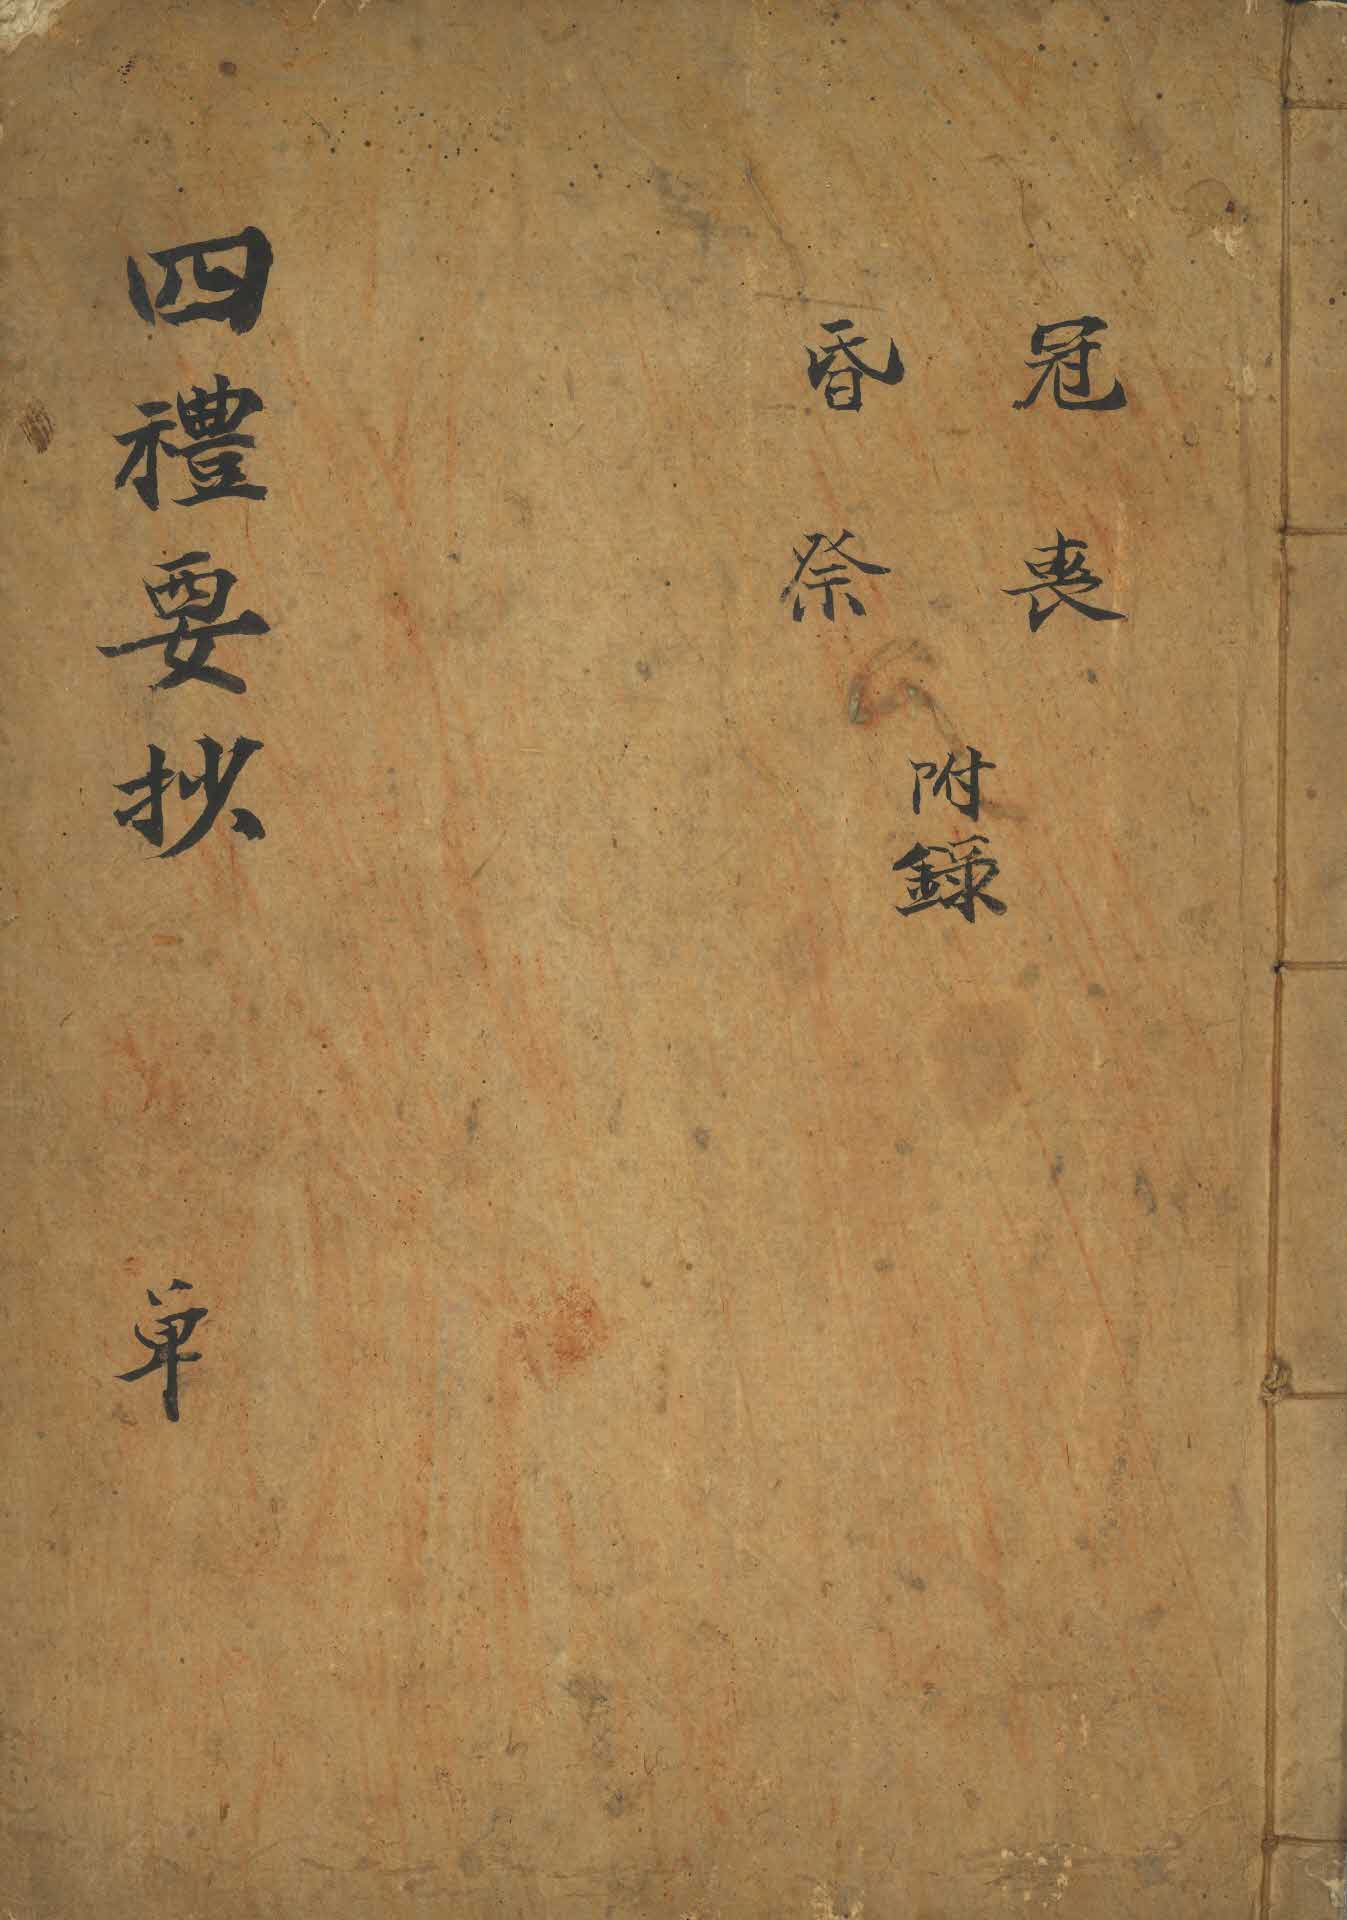 冠 喪
昏 祭
附錄
四禮要抄 单